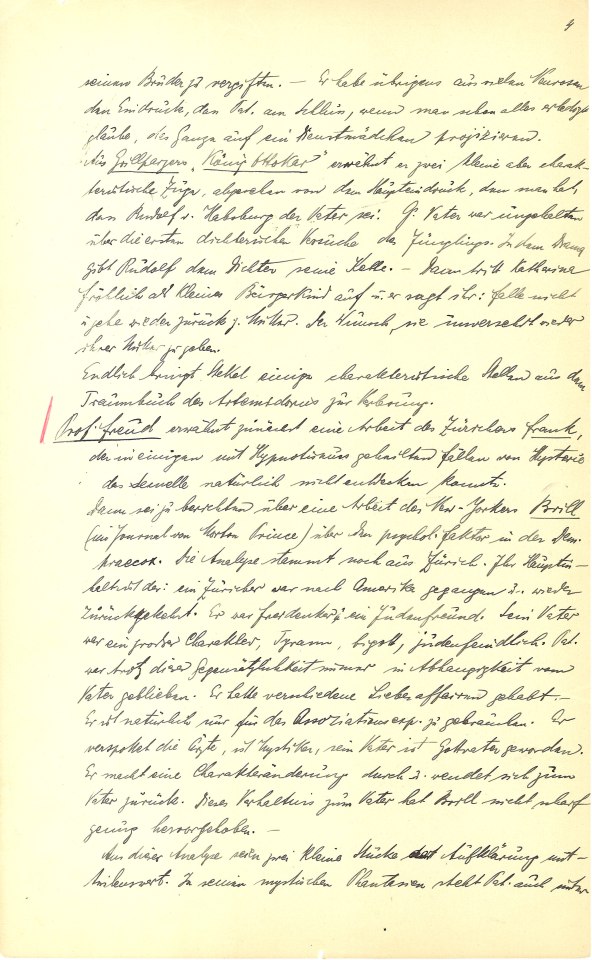 4
seinem Bruder zu vergiften. — Er habe übrigens aus vielen Neurosen
den Eindruck, daß Pat. am Schluß, wenn man schon alles erledigt
glaube, das Ganze auf ein Dienstmädchen projizieren.
Aus Grillparzers „König Ottokar" erwähnt er zwei kleine aber charak-
teristische Züge, abgesehen von dem Haupteindruck, den man hat,
daß Rudolf v. Habsburg der Vater sei. G. Vater war ungehalten
über die ersten dichterischen Versuche des Jünglings. In dem Drama
gibt Rudolf dem Dichter seine Kette. — Dann tritt Katharina
Fröhlich als kleines Bürgerkind auf u. er sagt ihr: falle nicht
u. gehe wieder zurück z. Mutter. Der Wunsch, sie unversehrt wieder
ihrer Mutter zu geben.
Endlich bringt Stekel einige charakteristische Stellen aus dem
Traumbuch des Artemidorus zur Verlesung.
Prof. Freud erwähnt zunächst eine Arbeit des Zürichers Frank,
der in einigen mit Hypnotismus geheilten Fällen von Hysterie
das Sexuelle natürlich nicht entdecken konnte.
Dann sei zu berichten über eine Arbeit des New-Yorkers Brill
(im Journal von Morton Prince) über den psychol. Faktor in der Dem.
praecox. Die Analyse stammt noch aus Zürich. Ihr Hauptin-
halt ist der: ein Züricher war nach Amerika gegangen u. wieder
zurückgekehrt. Er war Freidenker, ein Judenfreund. Sein Vater
war ein großer Charakter, Tyrann, bigott, judenfeindlich. Pat.
war trotz dieser Gegensätzlichkeit immer in Abhängigkeit vom
Vater geblieben. Er hatte verschiedene Liebesaffairen gehabt. —
Er ist natürlich nur für das Assoziationsexp. zu gebrauchen. Er
verspottet die Ärzte, ist Mystiker, sein Vater ist Gottvater geworden.
Er macht eine Charakteränderung durch u. wendet sich zum
Vater zurück. Dieses Verhältnis zum Vater hat Brill nicht scharf
genug hervorgehoben. —
Aus dieser Analyse seien zwei kleine Stücke Aufklärung mit-
teilenswert. In seinen mystischen Phantasien steht Pat. auch unter